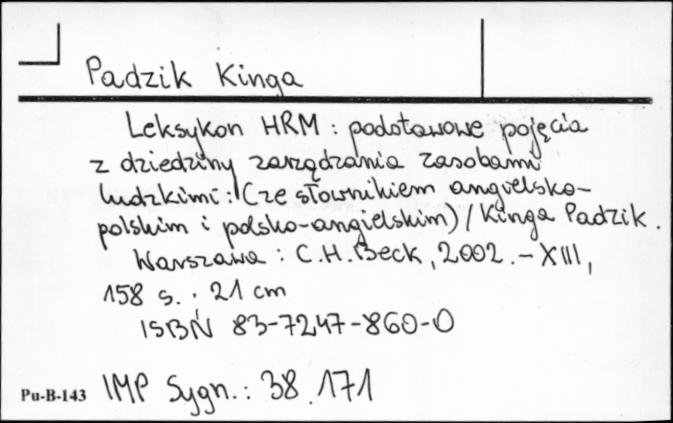 Padzik Kinga
Leksykon HRM : podstawowe pojęcia
z dziedziny zarządzania zasobami
ludzkimi : (ze słownikiem angielsko-
polskim i polsko-angielskim) / Kinga Padzik.
Warszawa : C.H.Beck, 2002. - XIII,
158 s. ; 21 cm
ISBN 83-7247-860-0
Pu-B-143 IMP Sygn.: 38.171